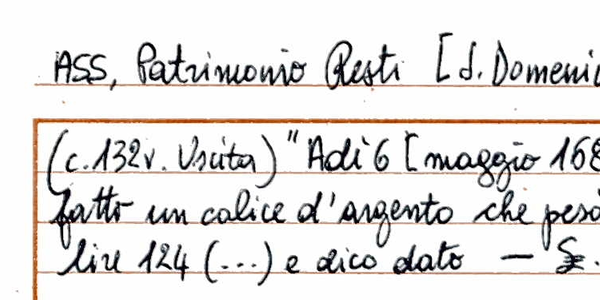 ASS, Patrimonio Resti [S. Domenic
(c.132v. Uscita) "Adì 6 [maggio 168
fatto un calice d'argento che pesò
lire 124 (...) e dico dato —